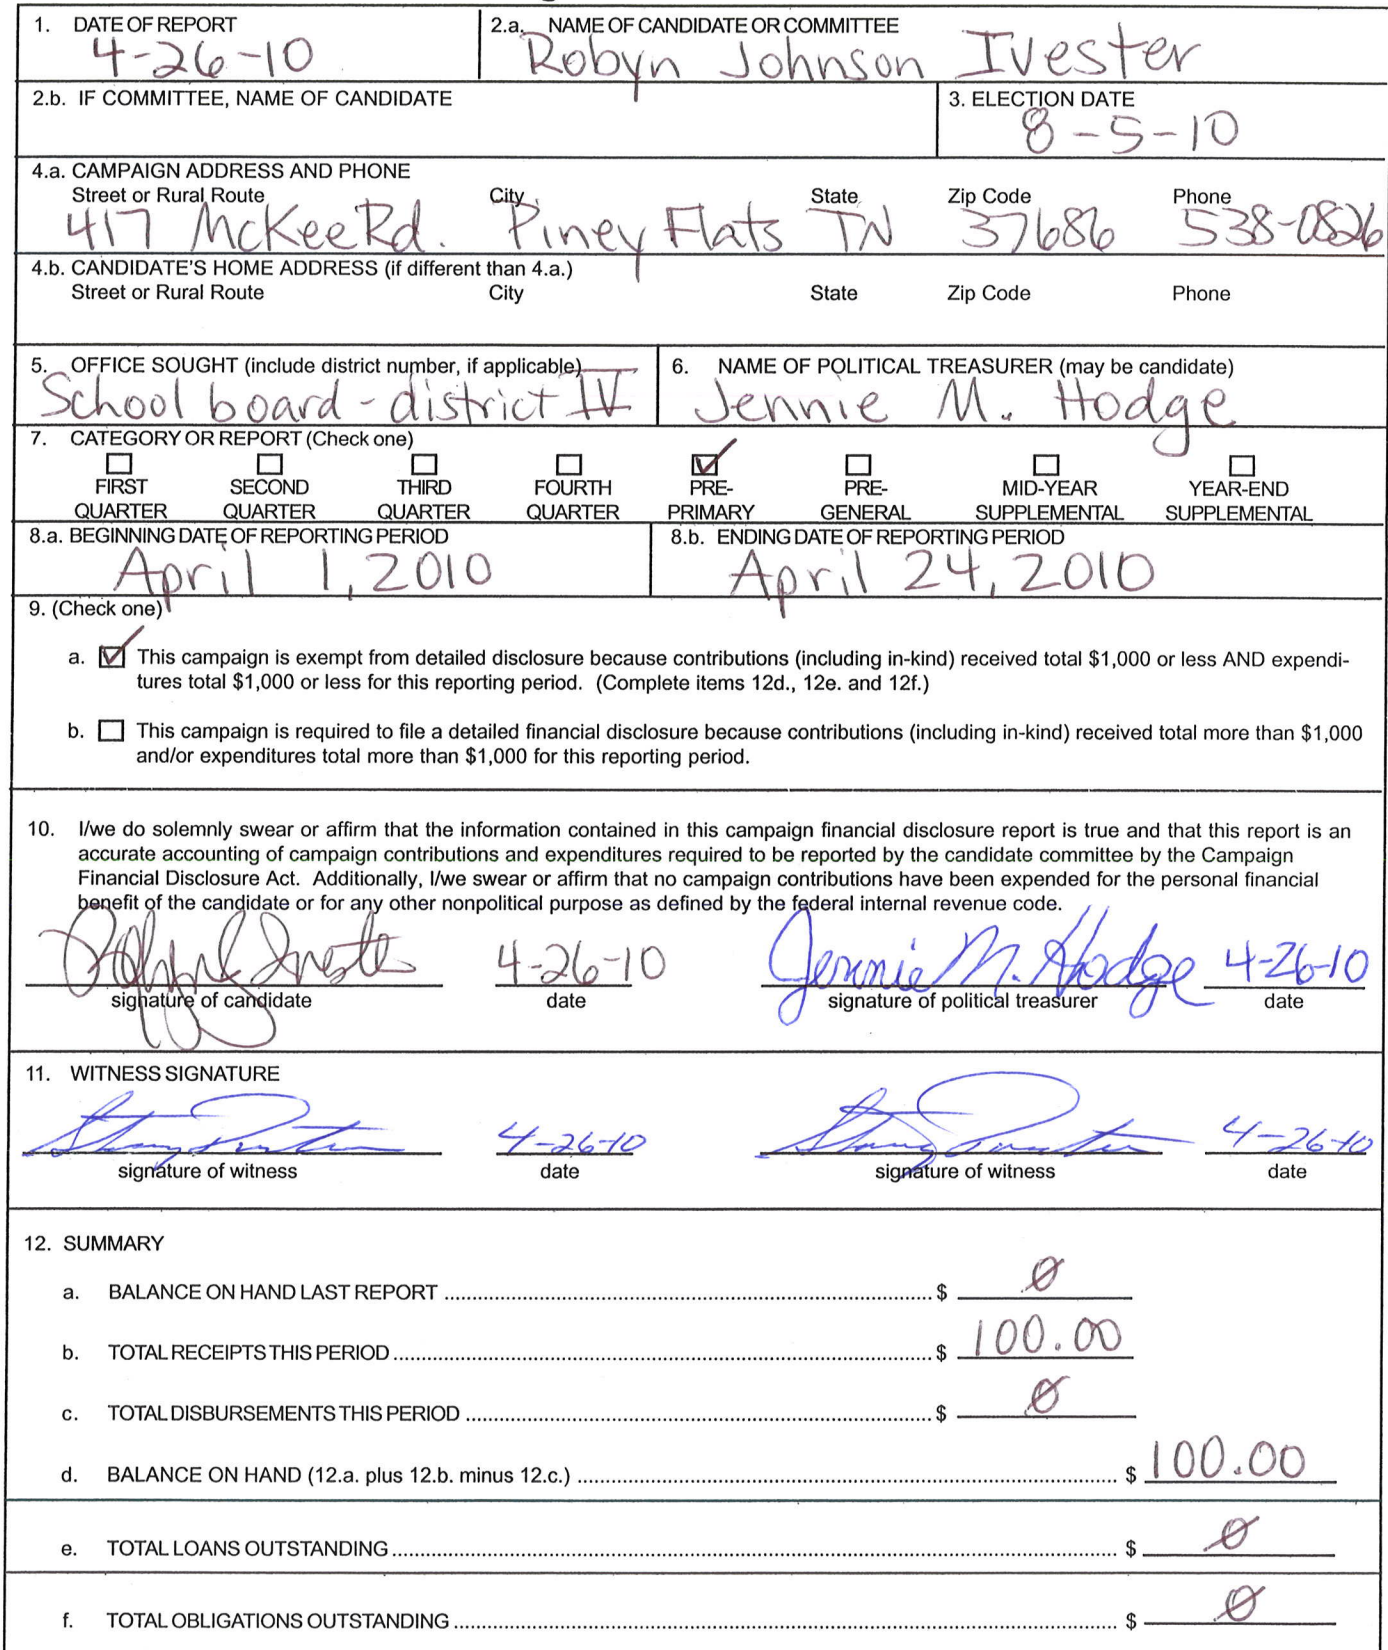 1. DATE OF REPORT
4-26-10
2.a. NAME OF CANDIDATE OR COMMITTEE
Robyn Johnson Ivester
2.b. IF COMMITTEE, NAME OF CANDIDATE
3. ELECTION DATE
8-5-10
4.a. CAMPAIGN ADDRESS AND PHONE
Street or Rural Route City State Zip Code Phone
417 McKee Rd. Piney Flats TN 37686 538-0826
4.b. CANDIDATE'S HOME ADDRESS (if different than 4.a.)
Street or Rural Route City State Zip Code Phone
5. OFFICE SOUGHT (include district number, if applicable)
School board - district IV
6. NAME OF POLITICAL TREASURER (may be candidate)
Jennie M. Hodge
7. CATEGORY OR REPORT (Check one)
FIRST QUARTER
SECOND QUARTER
THIRD QUARTER
FOURTH QUARTER
PRE-PRIMARY
PRE-GENERAL
MID-YEAR SUPPLEMENTAL
YEAR-END SUPPLEMENTAL
8.a. BEGINNING DATE OF REPORTING PERIOD
April 1, 2010
8.b. ENDING DATE OF REPORTING PERIOD
April 24, 2010
9. (Check one)
a. This campaign is exempt from detailed disclosure because contributions (including in-kind) received total $1,000 or less AND expendi-
tures total $1,000 or less for this reporting period. (Complete items 12d., 12e. and 12f.)
b. This campaign is required to file a detailed financial disclosure because contributions (including in-kind) received total more than $1,000
and/or expenditures total more than $1,000 for this reporting period.
10. I/we do solemnly swear or affirm that the information contained in this campaign financial disclosure report is true and that this report is an
accurate accounting of campaign contributions and expenditures required to be reported by the candidate committee by the Campaign
Financial Disclosure Act. Additionally, I/we swear or affirm that no campaign contributions have been expended for the personal financial
benefit of the candidate or for any other nonpolitical purpose as defined by the federal internal revenue code.
4-26-10 Jennie M. Hodge 4-26-10
signature of candidate date signature of political treasurer date
11. WITNESS SIGNATURE
4-26-10 4-26-10
signature of witness date signature of witness date
12. SUMMARY
a. BALANCE ON HAND LAST REPORT $ 0
b. TOTAL RECEIPTS THIS PERIOD $ 100.00
c. TOTAL DISBURSEMENTS THIS PERIOD $ 0
d. BALANCE ON HAND (12.a. plus 12.b. minus 12.c.) $ 100.00
e. TOTAL LOANS OUTSTANDING $ 0
f. TOTAL OBLIGATIONS OUTSTANDING $ 0